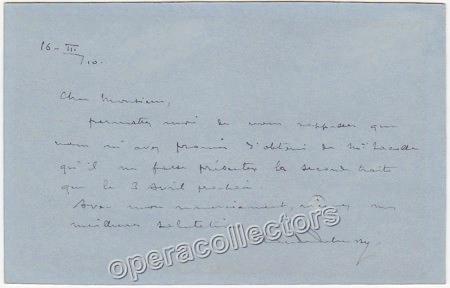 16 - III
/10.
Cher Monsieur,
permettez moi de vous rappeler que
vous m'avez promis d'obtenir de Mr
qu'il me fasse présenter la seconde traite
que le 3 Avril prochain.
Avec mon remerciement, recevez mes
meilleures salutations
operacollectors